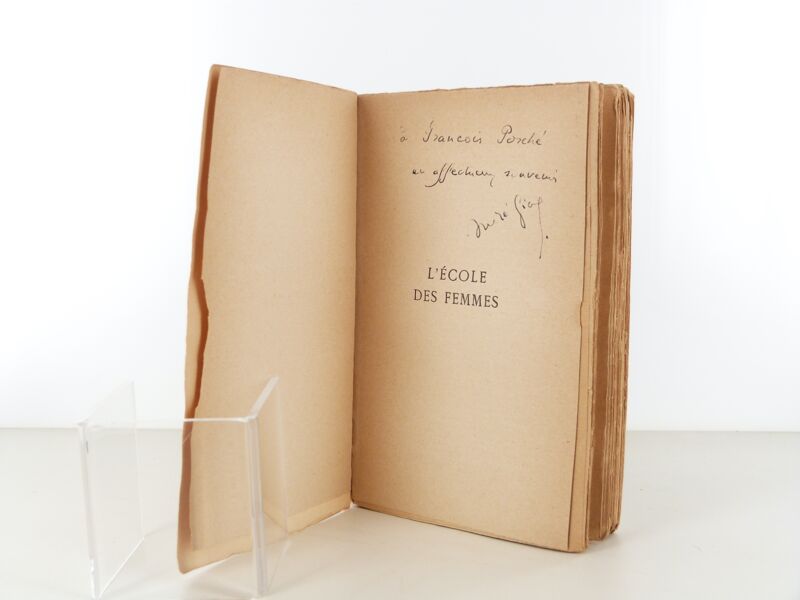 à François Porché
en affectueux souvenir
André Gide
L'ÉCOLE
DES FEMMES